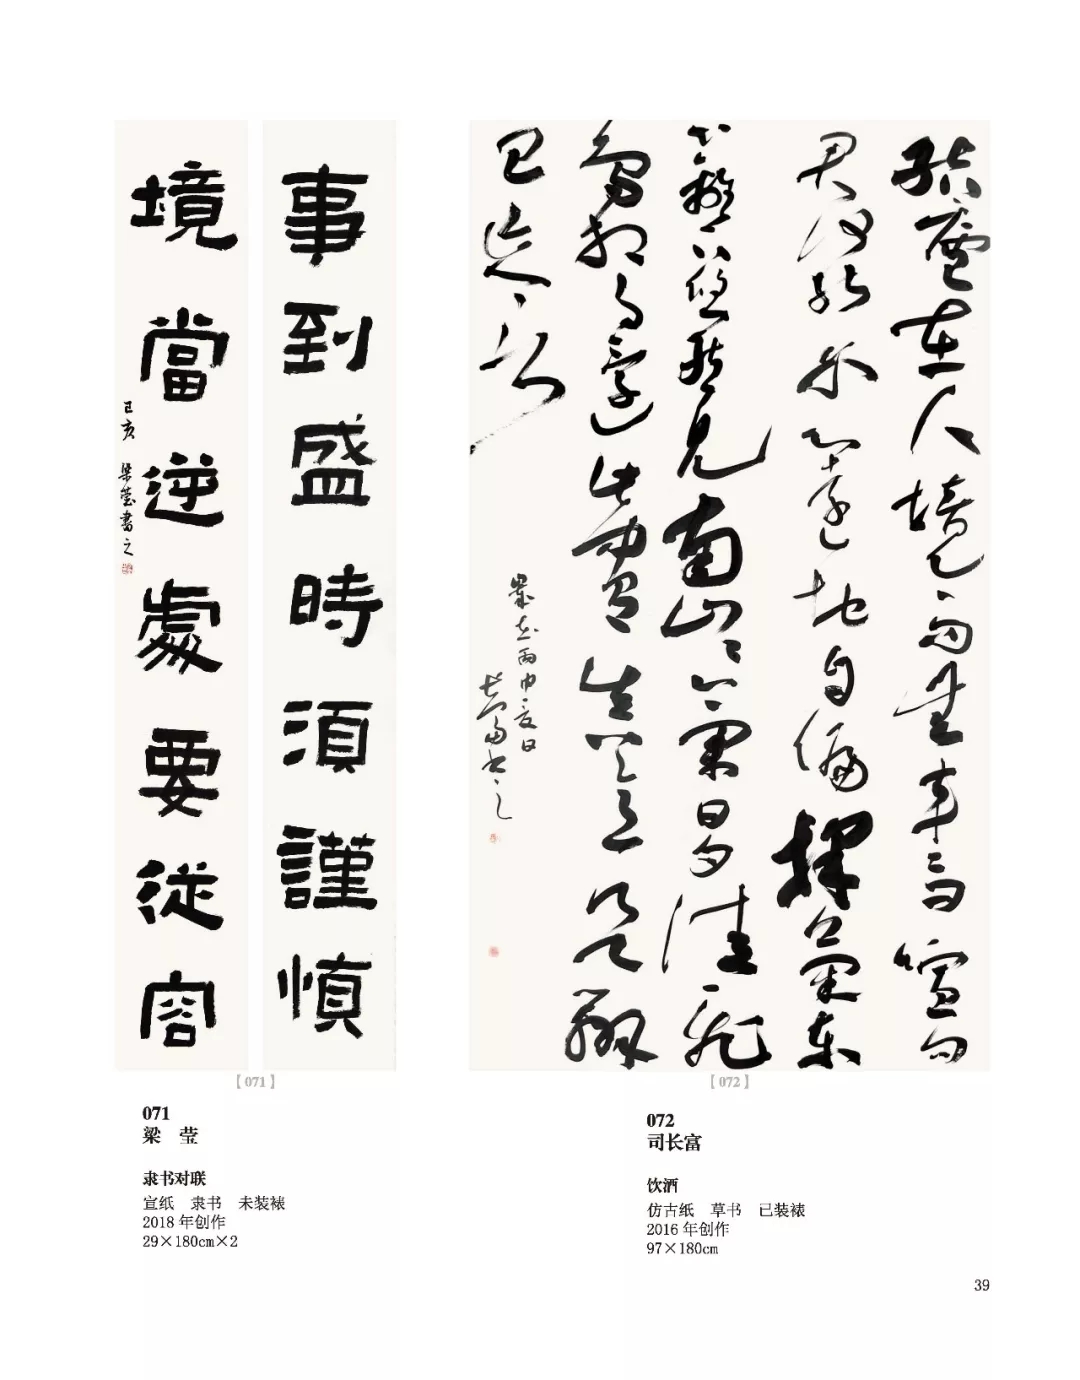 事到盛時須謹慎
境當逆處要從容
己亥 梁莹書之
結廬在人境而無車馬喧問
君何能尔心遠地自偏採菊東
籬下悠然見南山山氣日夕佳飛
鳥相与還此中有真意欲辨
已忘言
歲在丙申夏日
長富書之
【071】
【072】
071
梁 莹
隶书对联
宣纸 隶书 未装裱
2018 年创作
29×180cm×2
072
司长富
饮酒
仿古纸 草书 已装裱
2016 年创作
97×180cm
39